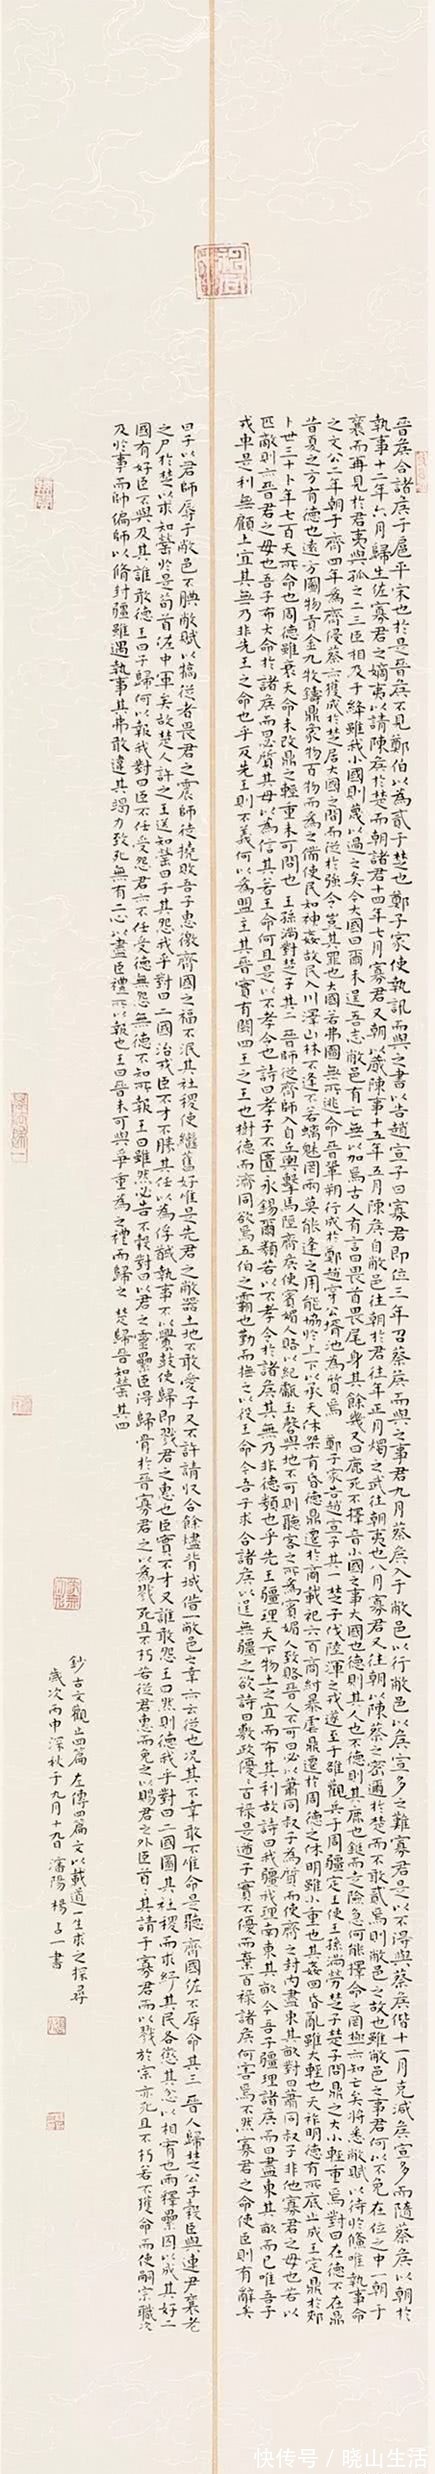 晉矦合諸矦于扈平宋也於是晉矦不見鄭伯以為貳于楚也鄭子家使執訊而與之書以告趙宣子曰寡君即位三年召蔡矦而與之事君九月蔡矦入于敝邑以行敝邑以矦宣多之難寡君是以不得與蔡矦偕十一月克減矦宣多而隨蔡矦以朝於
執事十二年六月歸生佐寡君之嫡夷以請陳矦於楚而朝諸君十四年七月寡君又朝以蕆陳事十五年五月陳矦自敝邑往朝於君往年正月燭之武往朝夷也八月寡君又往朝以陳蔡之密邇於楚而不敢貳焉則敝邑之故也雖敝邑之事君何以不免在位之中一朝于
襄而再見於君夷與孤之二三臣相及于絳雖我小國則蔑以過之矣今大國曰爾未逞吾志敝邑有亡無以加焉古人有言曰畏首畏尾身其餘幾又曰鹿死不擇音小國之事大國也德則其人也不德則其鹿也鋌而走險急何能擇命之罔極亦知亡矣將悉敝賦以待於鯈唯執事命
之文公二年朝于齊四年為齊侵蔡亦獲成於楚居大國之間而從於強令豈其罪也大國若弗圖無所逃命晉鞏朔行成於鄭趙穿公壻池為質焉 鄭子家告趙宣子其一 楚子伐陸渾之戎遂至于雒觀兵于周疆定王使王孫滿勞楚子楚子問鼎之大小輕重焉對曰在德不在鼎
昔夏之方有德也遠方圖物貢金九牧鑄鼎象物百物而為之備使民知神姦故民入川澤山林不逢不若螭魅罔兩莫能逢之用能協於上下以承天休桀有昏德鼎遷於商載祀六百商紂暴虐鼎遷於周德之休明雖小重也其姦回昏亂雖大輕也天祚明德有所底止成王定鼎於郟
卜世三十卜年七百天所命也周德雖衰天命未改鼎之輕重未可問也 王孫滿對楚子其二 晉師從齊師入自丘輿擊馬陘齊矦使賓媚人賂以紀甗玉磬與地不可則聽客之所為賓媚人致賂晉人不可曰必以蕭同叔子為質而使齊之封內盡東其畝對曰蕭同叔子非他寡君之母也若以
匹敵則亦晉君之母也吾子布大命於諸矦而曰必質其母以為信其若王命何且是以不孝令也詩曰孝子不匱永錫爾類若以不孝令於諸矦其無乃非德類也乎先王疆理天下物土之宜而布其利故詩曰我疆我理南東其畝今吾子疆理諸矦而曰盡東其畝而已唯吾子
戎車是利無顧土宜其無乃非先王之命也乎反先王則不義何以為盟主其晉實有闕四王之王也樹德而濟同欲焉五伯之霸也勤而撫之以役王命今吾子求合諸矦以逞無疆之欲詩曰敷政優〻百祿是遒子實不優而棄百祿諸矦何害焉不然寡君之命使臣則有辭矣
曰子以君師辱于敝邑不腆敝賦以犒從者畏君之震師徒撓敗吾子惠徼齊國之福不泯其社稷使繼舊好唯是先君之敝器土地不敢愛子又不許請收合餘燼背城借一敝邑之幸亦云從也況其不幸敢不唯命是聽 齊國佐不辱命其三 晉人歸楚公子穀臣與連尹襄老
之尸於楚以求知罃於是荀首佐中軍矣故楚人許之王送知罃曰子其怨我乎對曰二國治戎臣不才不勝其任以為俘馘執事不以釁鼓使歸即戮君之惠也臣實不才又誰敢怨王曰然則德我乎對曰二國圖其社稷而求紓其民各懲其忿以相宥也兩釋纍囚以成其好二
國有好臣不與及其誰敢德王曰子歸何以報我對曰臣不任受怨君亦不任受德無怨無德不知所報王曰雖然必告不穀對曰以君之靈纍臣得歸骨於晉寡君之以為戮死且不朽若從君惠而免之以賜君之外臣首〻其請于寡君而以戮於宗亦死且不朽若不獲命而使嗣宗職次
及於事而帥偏師以脩封疆雖遇執事其弗敢違其竭力致死無有二心以盡臣禮所以報也王曰晉未可與爭重為之禮而歸之 楚歸晉知罃其四
鈔古文觀止四篇 左傳四篇 文以載道一生求之探尋
歲次丙申深秋于九月十九日 瀋陽 楊子一書
快传号／晓山生活